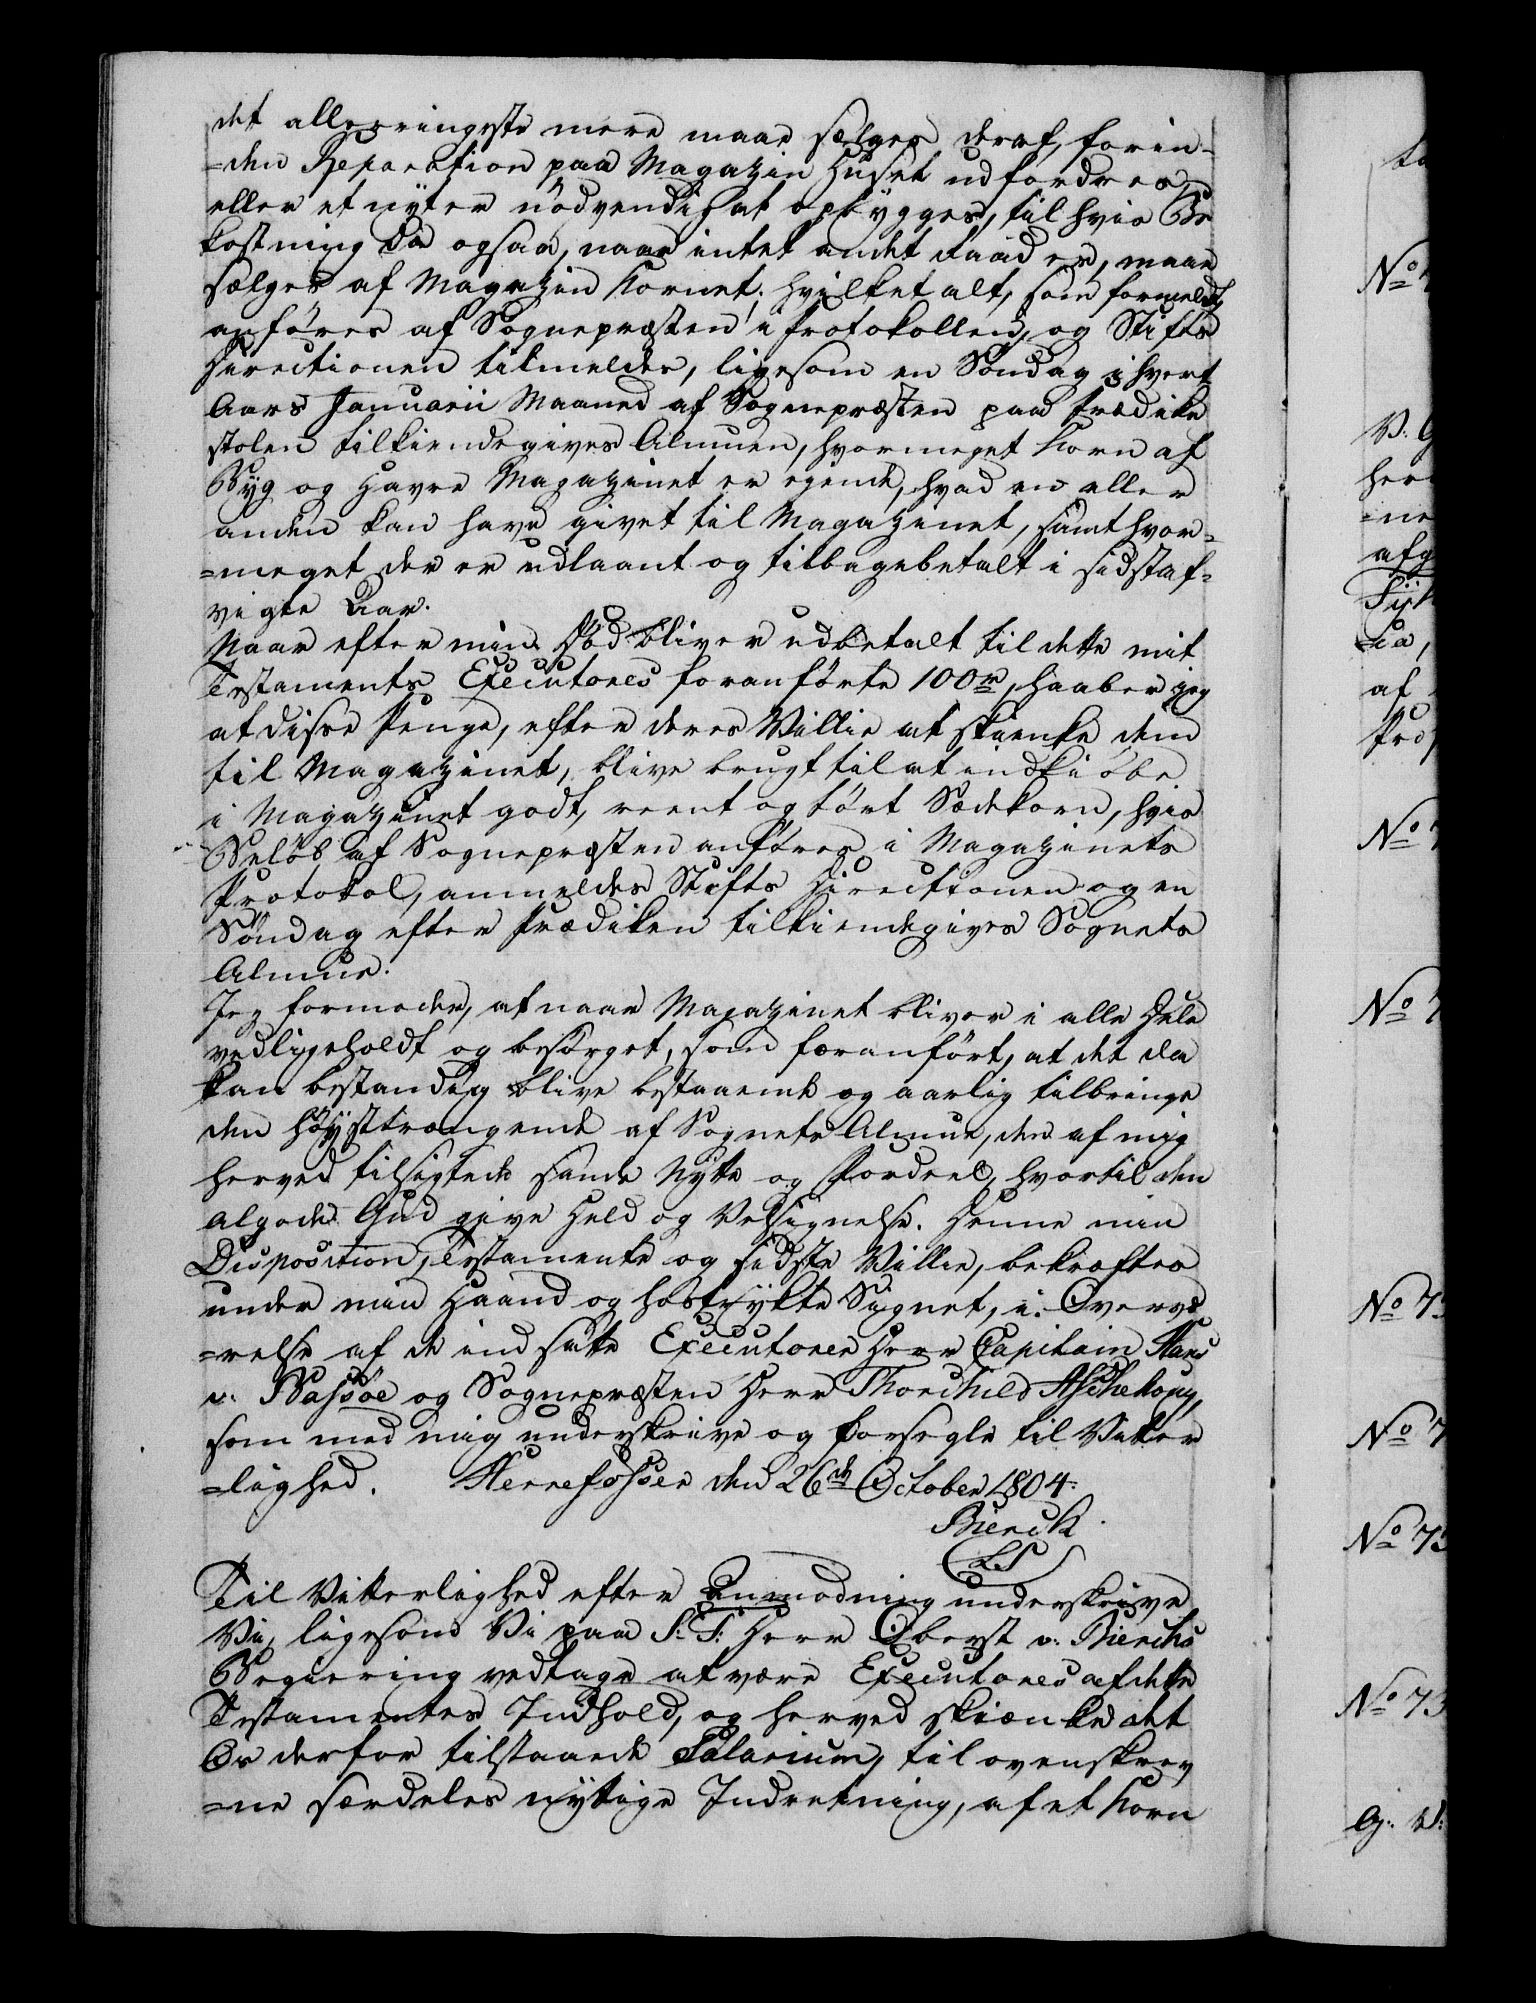 det allerringeste mere maae sælges deraf, forin-
-den Reparation paa Magazin Huset udfordres,
eller et nyter nödvendigat opbygges, til hvis Be
kostning da ogsaa, naar intet andet Raad er, maae
sælges af Magazin Kornet; hvilket alt, som formeldt,
anföres af Sognepræsten i Protokollen, og Stifts
Directionen tilmeldes, ligesom en Söndag i hvert
Aars Januarii Maaned af Sognepræsten paa Prædike
stolen tilkiendegives Almuen, hvormeget Korn af
Byg og Havre Magazinet er ejende, hvad en eller
anden kan have givet til Magazinet, samt hvor-
=meget der er udlaant og tilbagebetalt i sidstaf-
vigte Aar.
Naar efter min Död bliver udbetalt til dette mit
Testaments Executores foranförte 100 r, haaber jeg
at disse Penge, efter deres Villie at skienke dem
til Magazinet, blive brugt til at indkiöbe
i Magazinet godt, reent og tört Sædekorn, hvis
Belöb af Sognepræsten anföres i Magazinets
Protokol, anmeldes Stifts Directionen og en
Söndag efter Prædiken tilkiendegives Sognets
Almue.
Jeg formoder, at naar Magazinet bliver i alle Dele
vedligeholdt og besörget, som foranfört, at det da
kan bestandig blive bestaaende og aarlig tilbringe
den höysttrængende af Sognets Almue, den af mig
herved tilsigtede sande Nytte og Fordeel, hvortil den
algode Gud give Held og Velsignelse. Denne min
Disposition, Testamente og sidste Villie, bekræftes
under min Haand og hostrykte Signet, i Overvæ
=relse af de indsatte Executorer Herr Capitain Hans
v. Bassöe og Sognepræsten Herr Thorchild Aschehoug,
som med mig underskrive og forsegle til Vitter
=lighed. Herrefosser den 26de October 1804.
Bierch
L.S
Til Vitterlighed efter Anmodning underskrive
Vi, ligesom Vi paa S: T: Herr Oberst v. Bierchs
Begiering vedtage at være Executores af dette
Testamentes Indhold, og herved skiænke det
Os derfor tilstaaede Salarium, til ovenskrev
=ne særdeles nyttige Indretning, af et Korn
No
V.
No
No
No 73
No
No 73
No 73